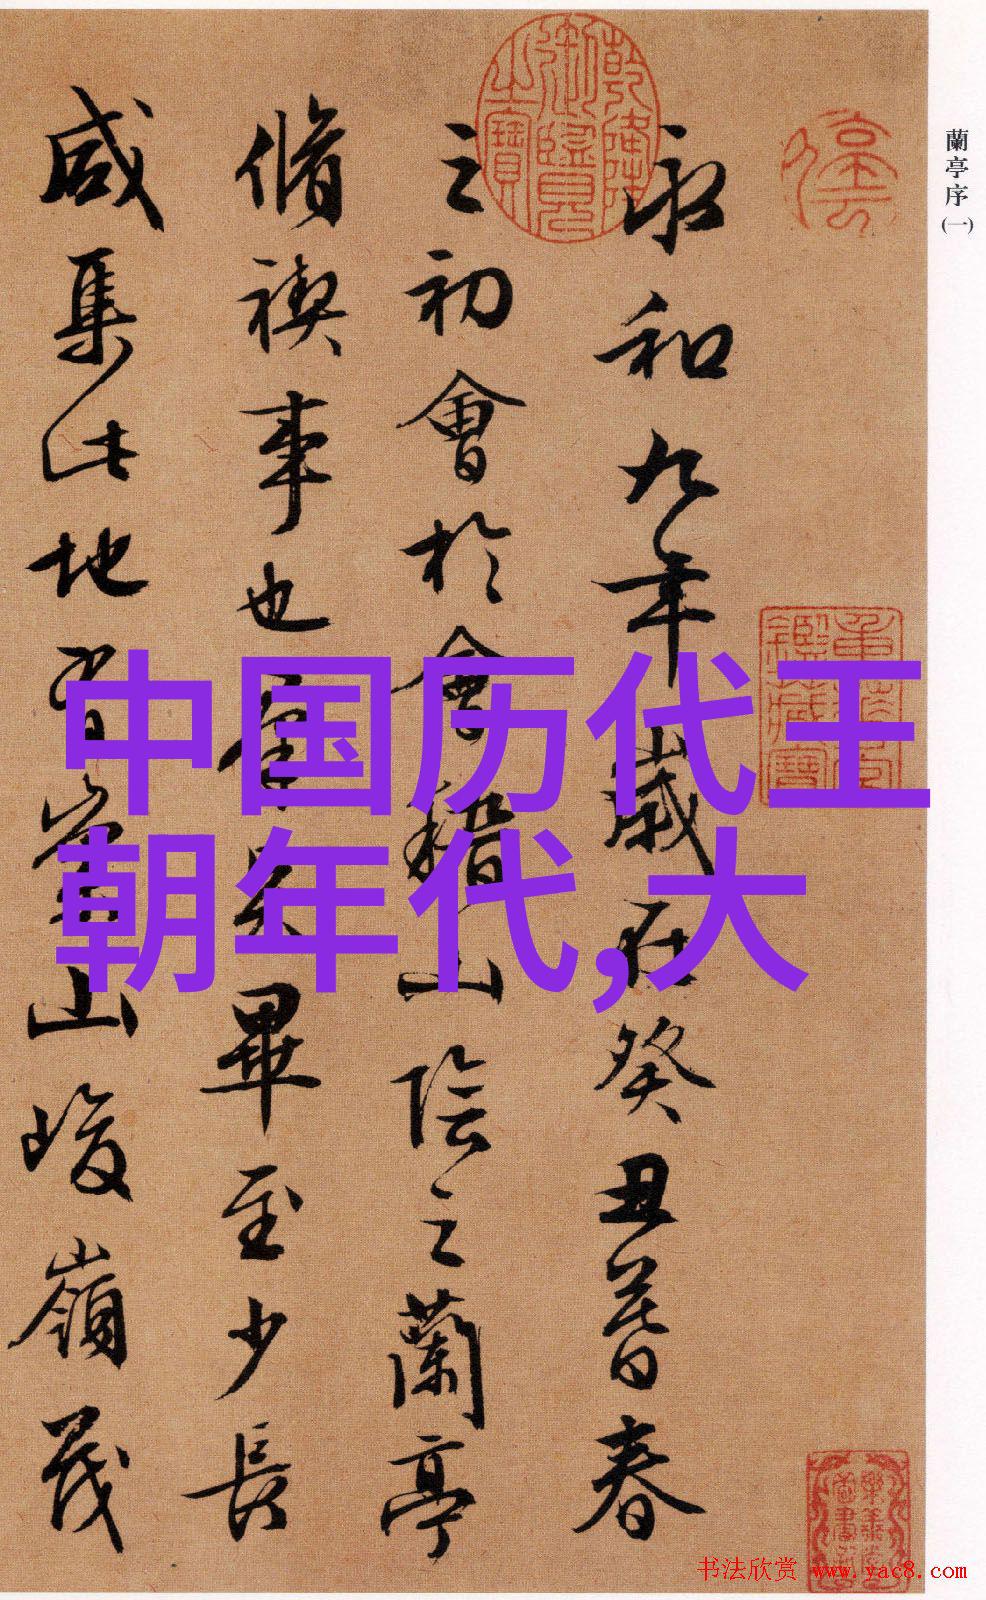 蘭亭序(一)
永和九年歲在癸丑暮春
之初會於會稽山陰之蘭亭
脩禊事也羣賢畢至少長
咸集此地有崇山峻嶺茂
乾隆御覽之寶
中国历代王
朝年代,大
书法欣赏 www.yac8.com